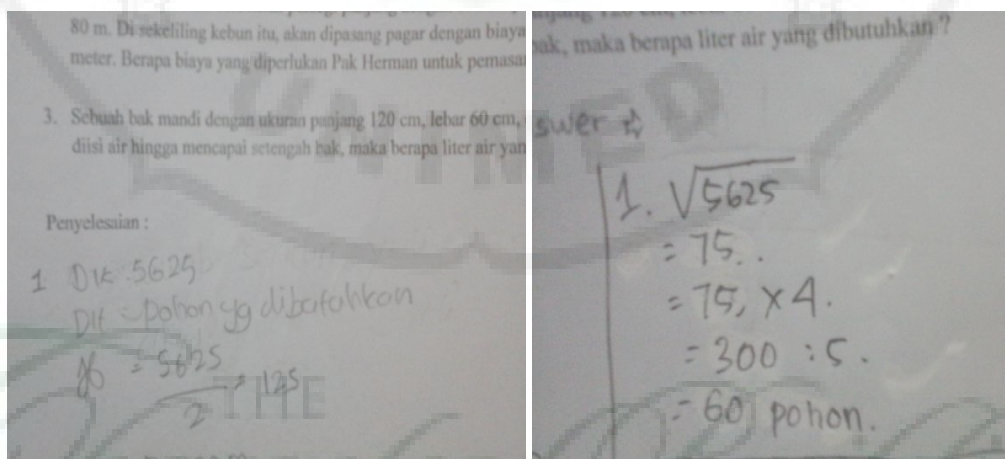 80 m. Di sekeliling kebun itu, akan dipasang pagar dengan biaya
meter. Berapa biaya yang diperlukan Pak Herman untuk pemasa
3. Sebuah bak mandi dengan ukuran panjang 120 cm, lebar 60 cm,
diisi air hingga mencapai setengah bak, maka berapa liter air yan
Penyelesaian :
1 Dik : 5625
Dit = pohon yg dibutuhkan
= 5625
2
= 125
THE
bak, maka berapa liter air yang dibutuhkan ?
swer
1. √5625
= 75.
= 75, × 4.
= 300 : 5.
= 60 pohon.